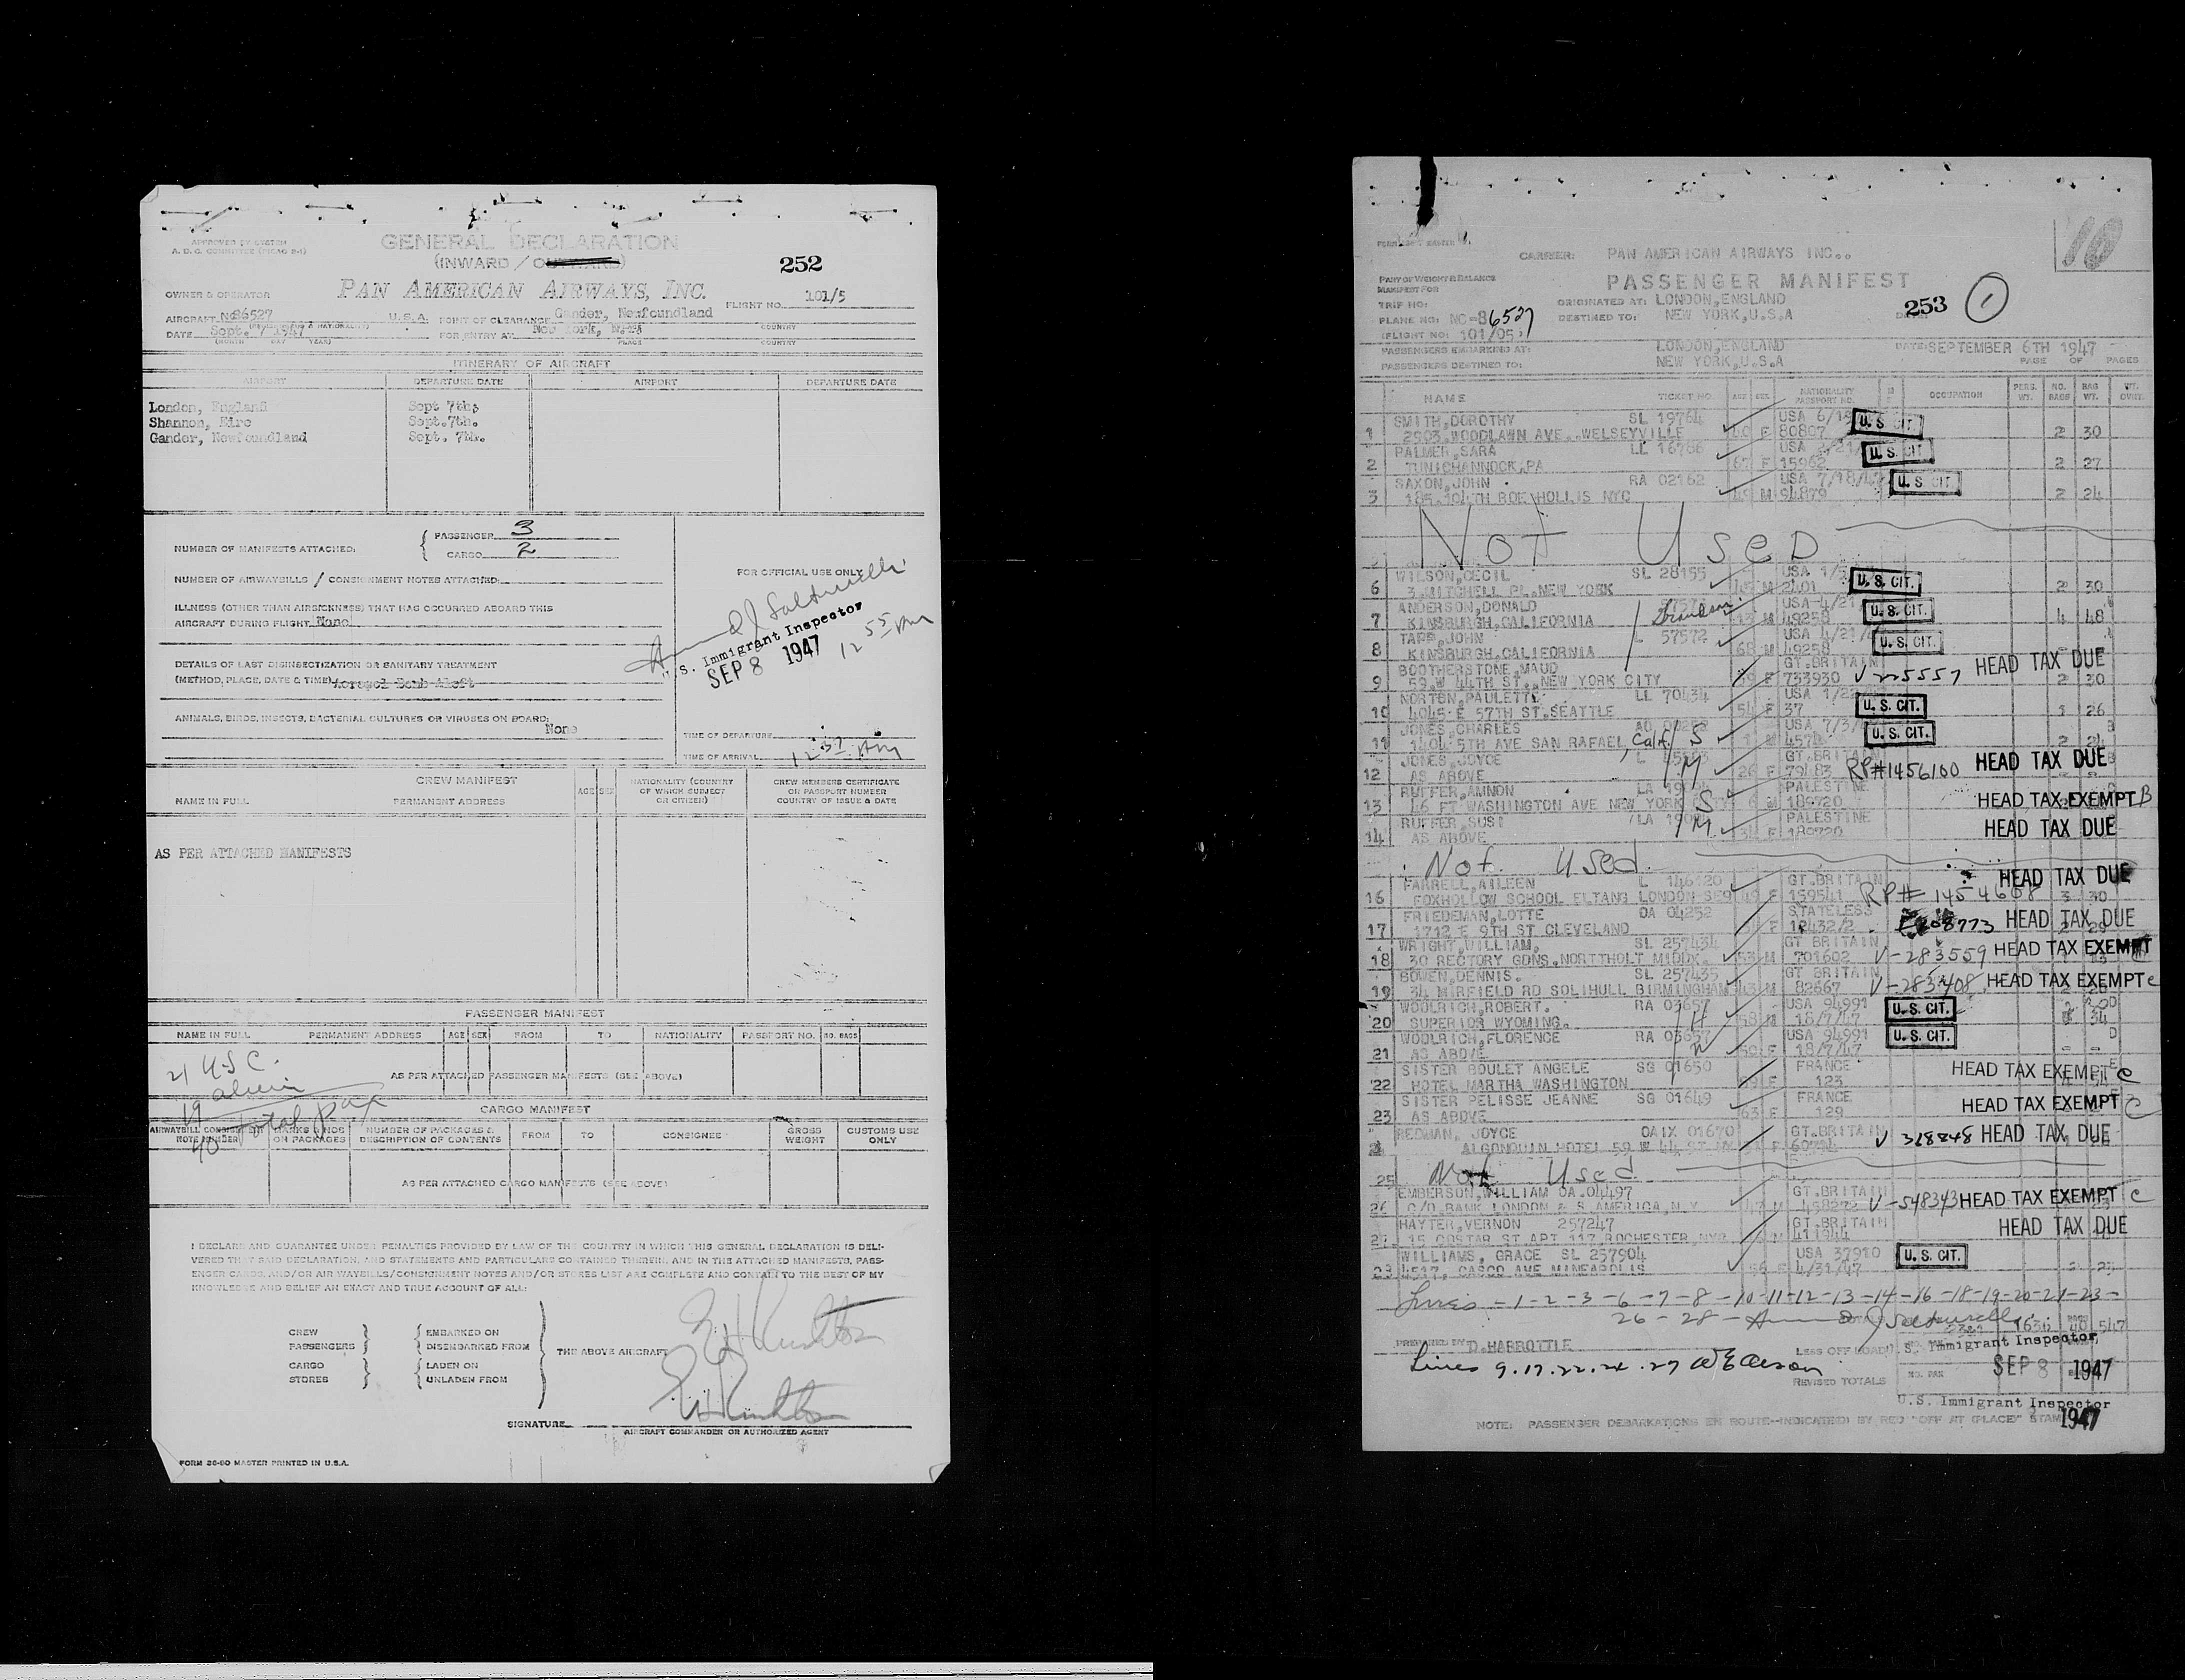 APPROVED BY SYSTEM
GENERAL DECLARATION
(INWARD / OUTWARD)
252
OWNER & OPERATOR PAN AMERICAN AIRWAYS, INC. FLIGHT NO. 101/5
AIRCRAFT NC86527 U.S.A. POINT OF CLEARANCE Gander, Newfoundland
(REGISTRATION & NATIONALITY) COUNTRY
DATE Sept. 7 1947 FOR ENTRY AT New York, N.Y.
(MONTH DAY YEAR) PLACE COUNTRY
ITINERARY OF AIRCRAFT
AIRPORT DEPARTURE DATE AIRPORT DEPARTURE DATE
London, England Sept 7th.
Shannon, Eire Sept.7th.
Gander, Newfoundland Sept. 7th.
NUMBER OF MANIFESTS ATTACHED: PASSENGER 3
CARGO 2
NUMBER OF AIRWAYBILLS / CONSIGNMENT NOTES ATTACHED:
FOR OFFICIAL USE ONLY
ILLNESS (OTHER THAN AIRSICKNESS) THAT HAS OCCURRED ABOARD THIS
AIRCRAFT DURING FLIGHT None
U.S. Immigrant Inspector
SEP 8 1947
12 55 AM
DETAILS OF LAST DISINSECTIZATION OR SANITARY TREATMENT
(METHOD, PLACE, DATE & TIME) Aerosol Bomb Aloft
ANIMALS, BIRDS, INSECTS, BACTERIAL CULTURES OR VIRUSES ON BOARD:
None
TIME OF DEPARTURE
TIME OF ARRIVAL 12 37 AM
CREW MANIFEST
NAME IN FULL PERMANENT ADDRESS AGE SEX NATIONALITY (COUNTRY OF WHICH SUBJECT OR CITIZEN) CREW MEMBERS CERTIFICATE OR PASSPORT NUMBER COUNTRY OF ISSUE & DATE
AS PER ATTACHED MANIFESTS
PASSENGER MANIFEST
NAME IN FULL PERMANENT ADDRESS AGE SEX FROM TO NATIONALITY PASSPORT NO. NO. BAGS
21 U.S.C.
AS PER ATTACHED PASSENGER MANIFESTS (SEE ABOVE)
19 alien
40 total pax
CARGO MANIFEST
AIRWAYBILL CONSIGNMENT NOTE NUMBER MARKS & NOS ON PACKAGES NUMBER OF PACKAGES & DESCRIPTION OF CONTENTS FROM TO CONSIGNEE GROSS WEIGHT CUSTOMS USE ONLY
AS PER ATTACHED CARGO MANIFESTS (SEE ABOVE)
I DECLARE AND GUARANTEE UNDER PENALTIES PROVIDED BY LAW OF THE COUNTRY IN WHICH THIS GENERAL DECLARATION IS DELI-
VERED THAT SAID DECLARATION, AND STATEMENTS AND PARTICULARS CONTAINED THEREIN, AND IN THE ATTACHED MANIFESTS, PASS-
ENGER CARGO, AND/OR AIR WAYBILLS/CONSIGNMENT NOTES AND/OR STORES LIST ARE COMPLETE AND CONTAIN TO THE BEST OF MY
KNOWLEDGE AND BELIEF AN EXACT AND TRUE ACCOUNT OF ALL:
CREW EMBARKED ON
PASSENGERS DISEMBARKED FROM
THE ABOVE AIRCRAFT
CARGO LADEN ON
STORES UNLADEN FROM
SIGNATURE
AIRCRAFT COMMANDER OR AUTHORIZED AGENT
FORM 36-80 MASTER PRINTED IN U.S.A.
10
CARRIER: PAN AMERICAN AIRWAYS INC..
PART OF WEIGHT & BALANCE
MANIFEST FOR
PASSENGER MANIFEST
TRIP NO: ORIGINATED AT: LONDON,ENGLAND 253 1
PLANE NO: NC-86527 DESTINED TO: NEW YORK,U.S.A
FLIGHT NO: 101/05
PASSENGERS EMBARKING AT: LONDON,ENGLAND DATE: SEPTEMBER 6TH 1947
PASSENGERS DESTINED TO: NEW YORK,U.S.A PAGE OF PAGES
NAME TICKET NO. AGE SEX NATIONALITY PASSPORT NO. OCCUPATION PERS. WT. NO. BAGS BAG WT. WT. OVRWT.
SMITH,DOROTHY SL 19764 USA U. S. CIT.
1 2903 WOODLAWN AVE. WELSEYVILLE F 80807 2 30
PALMER,SARA LL 16766 USA U. S. CIT.
2 TUNICHANNOCK,PA 67 F 15962 2 27
SAXON,JOHN RA 02162 USA 7/18/47 U. S. CIT.
3 185-104TH ROE HOLLIS NYC 49 M 94879 2 24
NOT USED
WILSON,CECIL SL 28155 USA U. S. CIT.
6 3 MITCHELL PL.NEW YORK M 2401 2 30
ANDERSON,DONALD USA-4/21 U. S. CIT.
7 KINSBURGH,CALIFORNIA M 49258 4 48
TAPP,JOHN L 57572 USA 4/21/ U. S. CIT.
8 KINSBURGH,CALIFORNIA 68 M 49258
BOOTHERSTONE,MAUD GT.BRITAIN HEAD TAX DUE
9 59.W 44TH ST.,NEW YORK CITY F 733930 V 225557 2 30
NORTON,PAULETTE LL 70434 USA 1/22 U. S. CIT.
10 4045 E 57TH ST.SEATTLE 54 F 37 26
JONES,CHARLES USA 7/3/ U. S. CIT.
11 1404 5TH AVE SAN RAFAEL, Calif S M
JONES,JOYCE GT.BRITAIN HEAD TAX DUE
12 AS ABOVE M 26 F 79483 RP#1456100
RUFFER,AMNON PALESTINE
13 46 FT WASHINGTON AVE NEW YORK S M 189720 HEAD TAX EXEMPT B
RUFFER,SUSI LA PALESTINE HEAD TAX DUE
14 AS ABOVE M F 189720
Not Used
FARRELL,AILEEN L 146120 GT.BRITAIN HEAD TAX DUE
16 FOXHOLLOW SCHOOL ELTANG LONDON SE9 49 F 159541 RP# 1454608 3 30
FRIEDEMAN,LOTTE OA 04252 STATELESS
17 1712 E 9TH ST CLEVELAND F 12432/2 HEAD TAX DUE
WRIGHT,WILLIAM. SL 257434 GT BRITAIN
18 30 RECTORY GDNS,NORTTHOLT MIDDX. 53 M 701602 V-283559 HEAD TAX EXEMPT
BOVEN,DENNIS. SL 257435 GT BRITAIN
19 34 MIRFIELD RD SOLIHULL BIRMINGHAM 43 M 82667 V-283408 HEAD TAX EXEMPT C
WOOLRICH,ROBERT. RA 03657 USA 94991 U. S. CIT.
20 SUPERIOR WYOMING. H 58 M 18/7/47 34
WOOLRICH,FLORENCE RA 03657 USA 94991 U. S. CIT.
21 AS ABOVE W 50 F 18/7/47
SISTER BOULET ANGELE SG 01650 FRANCE HEAD TAX EXEMPT C
22 HOTEL MARTHA WASHINGTON F 123
SISTER PELISSE JEANNE SG 01649 FRANCE HEAD TAX EXEMPT C
23 AS ABOVE 63 F 129
REDMAN, JOYCE OAIX 01670 GT.BRITAIN V 318848 HEAD TAX DUE
ALGONQUIN HOTEL 59 W 44 ST NY F
25 Not Used
EMBERSON,WILLIAM OA.04497 GT.BRITAIN V-548343 HEAD TAX EXEMPT C
26 C/O.BANK LONDON & S.AMERICA,N.Y. 47 M
HAYTER,VERNON 257247 GT.BRITAIN HEAD TAX DUE
27 15 COSTAR ST APT 117,ROCHESTER,NYC M 411944
WILLIAMS, GRACE SL 257904 USA 37910 U. S. CIT.
4517, CASCO AVE MINEAPOLIS 56 F 4/31/47
Lines -1-2-3-6-7-8-10-11-12-13-14-16-18-19-20-21-23-
26-28-
PREPARED BY D.HARBOTTLE LESS OFF LOAD U.S. Immigrant Inspector
Lines 9.17.22.24.27 SEP 8 1947
REVISED TOTALS
U.S. Immigrant Inspector
NOTE: PASSENGER DEBARKATIONS EN ROUTE—INDICATED BY RED "OFF AT (PLACE)" STAMP
1947